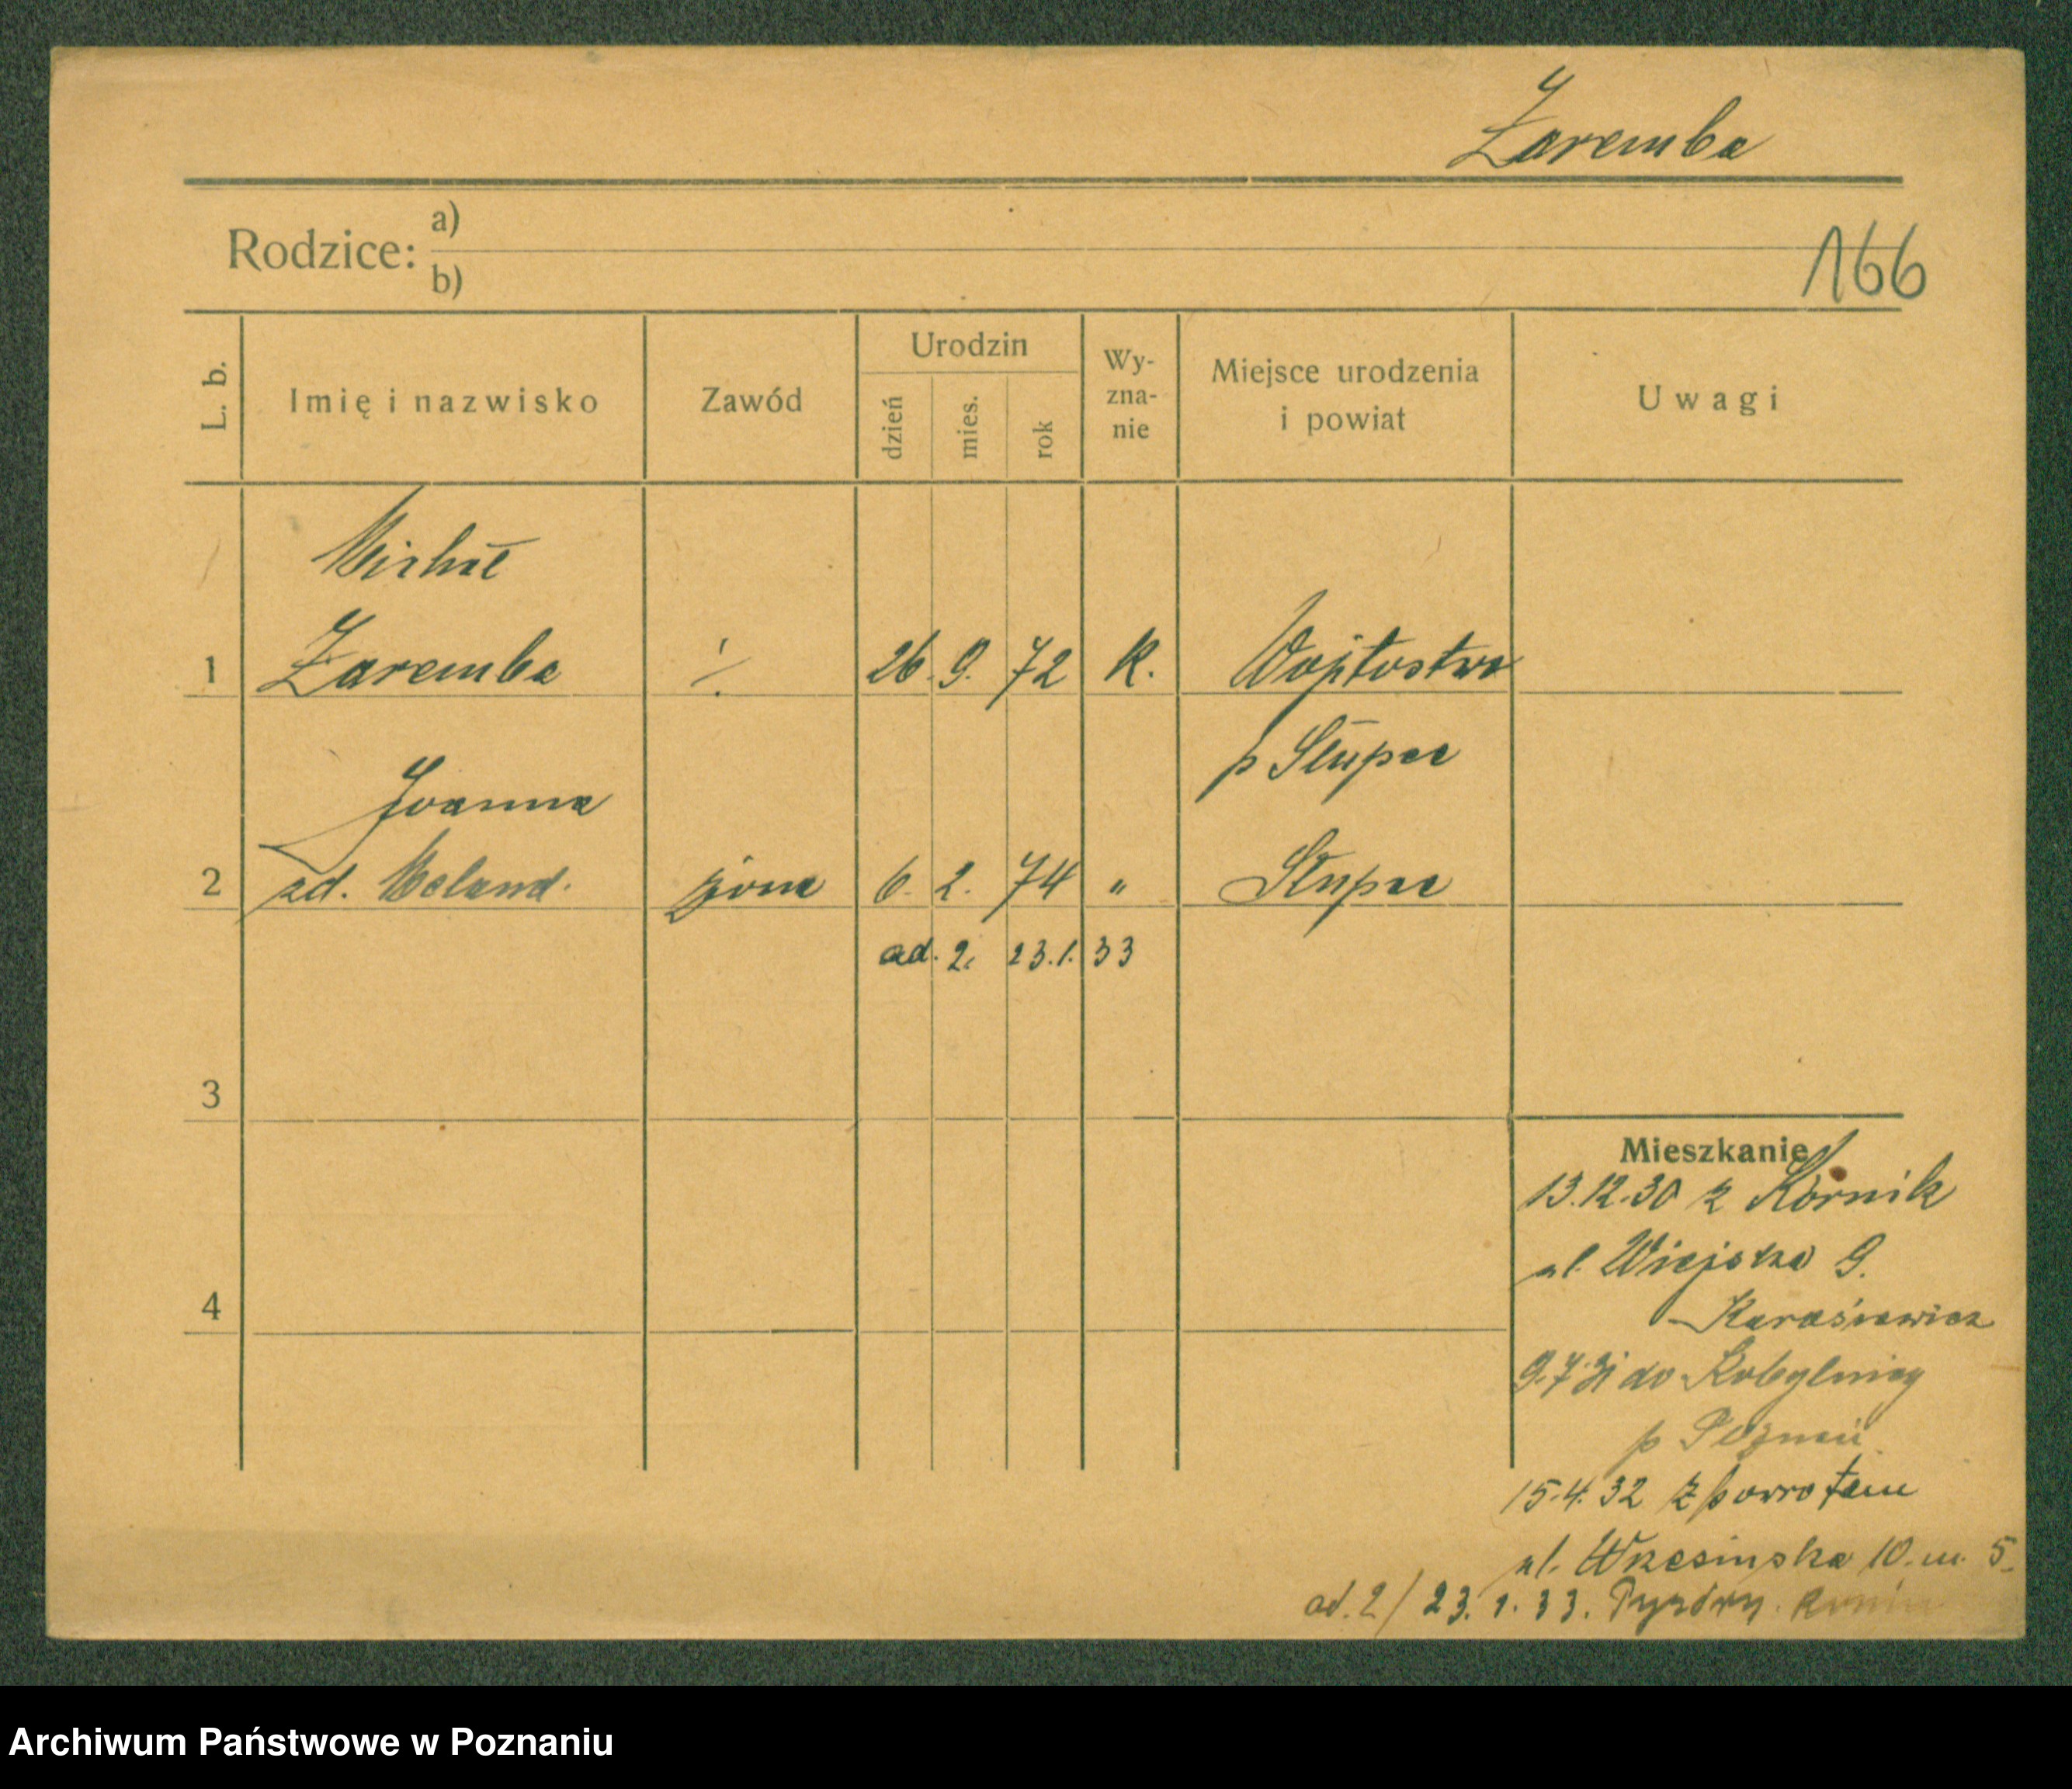 Zaremba
Rodzice: a)
b)
166
L. b.
Imię i nazwisko
Zawód
Urodzin
dzień
mies.
rok
Wy-
zna-
nie
Miejsce urodzenia
i powiat
Uwagi
Michał
1 Zaremba ·/. 26. 9. 72 k. Wojtostwo
p Słupca
Joanna
2 zd. żona 6. 2. 74 " Słupca
ad. 2. 23.1.33
3
Mieszkanie
13.12.30 z Kórnik
ul. Wiejska 9.
4
Karaśkiewicz
9.7.31 do Kobylnicy
p Poznań.
15.4.32 z powrotem
ul. Wrzesinska 10. m. 5.
ad. 2/ 23.1.33. Pyzdry.
Archiwum Państwowe w Poznaniu